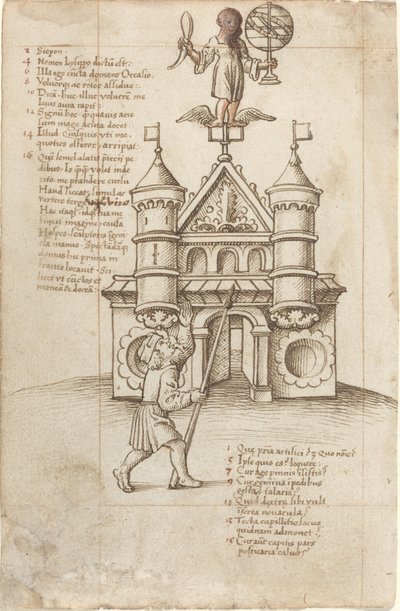 2 Sicyon.
4 Nomen Lysippo dictū est:
6 Illa ego cūcta domans Occasio.
8 Volvorq; ac rotor assidue:
10 Dicā: huc illuc volucrēm me
Levis aura rapit:
12 Signū hoc: quavis acie
sum magis acuta docet:
14 Illud: Quisquis uti me
quoties offeror: arripiat:
16 Quē semel alatis p̄terij pe
dibus: Is volet inde
cito me prehendere cursu
Haud liceat: simul ac
vertere terga
Hac me
finxit imagine: causa
Hospes: sculptoris
manus: Spectādāq;
domus huc prima me
fronte locavit: Sci
licet ut cūctos et
moneā & doceā:
1 Que pria artifici: ⁊ Quo noīe:
5 Ipse quis es: loquere:
7 Cur age pinnis īsistis:
9 Cur gemina ī pedibus
gestas talaria:
Quid dextre sibi vult
iserta novacula:
13 Tecta capillitio facies
quidnam admonet:
15 Cur aūt capitis pars
posticaria calva: